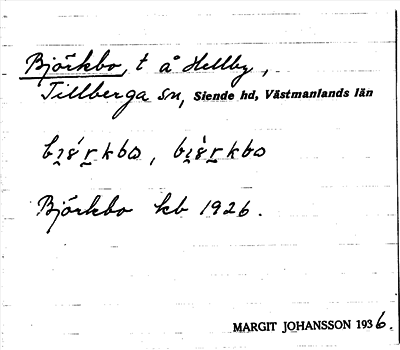 Björkbo, t å Hellby,
Tillberga sn, Siende hd, Västmanlands län
Björkbo kb 1926.
MARGIT JOHANSSON 1936.